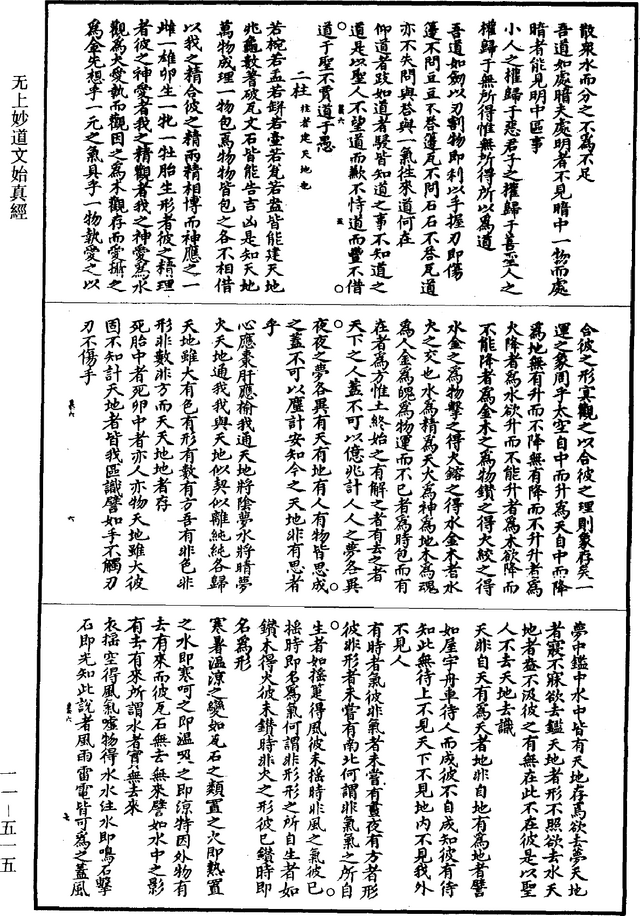 无上妙道文始真經
散眾水而分之不為不足
吾道如處暗夫處明者不見暗中一物而處
暗者能見明中區事
小人之權歸于惡君子之權歸于善聖人之
權歸于無所得惟無所得所以為道
吾道如劍以刃割物即利以手握刃即傷
籩不問豆豆不荅籩瓦不問石石不荅瓦道
亦不失問與荅與一氣往來道何在
仰道者跂如道者駸皆知道之事不知道之
道是以聖人不望道而歉不恃道而豐不借
道于聖不賈道于愚
二柱 柱者建天地也
若椀若盂若缾若壺若瓮若盎皆能建天地
兆龜數蓍破瓦文石皆能告吉凶是知天地
萬物成理一物包焉物物皆包之各不相借
以我之精合彼之精兩精相搏而神應之一
雌一雄卵生一牝一牡胎生形者彼之精理
者彼之神愛者我之精觀者我之神愛為水
觀為火愛執而觀因之為木觀存而愛攝之
為金先想乎一元之氣具乎一物執愛之以
合彼之形冥觀之以合彼之理則象存矣一
運之象周乎太空自中而升為天自中而降
為地無有升而不降無有降而不升升者為
火降者為水欲升而不能升者為木欲降而
不能降者為金木之為物鑽之得火絞之得
水金之為物擊之得火鎔之得水金木者水
火之交也水為精為天火為神為地木為魂
為人金為魄為物運而不已者為時包而有
在者為方惟土終始之有解之者有去之者
天下之人蓋不可以億兆計人人之夢各異
夜夜之夢各異有天有地有人有物皆思成
之蓋不可以塵計安知今之天地非有思者
乎
心應棗肝應榆我通天地將陰夢水將晴夢
火天地通我我與天地似契似離純純各歸
天地雖大有色有形有數有方吾有非色非
形非數非方而天天地地者存
死胎中者死卵中者亦人亦物天地雖大彼
固不知計天地者皆我區識譬如手不觸刃
刃不傷手
夢中鑑中水中皆有天地存焉欲去夢天地
者寢不寐欲去鑑天地者形不照欲去水天
地者盎不汲彼之有無在此不在彼是以聖
人不去天地去識
天非自天有為天者地非自地有為地者譬
如屋宇舟車待人而成彼不自成知彼有待
知此無待上不見天下不見地內不見我外
不見人
有時者氣彼非氣者未嘗有晝夜有方者形
彼非形者未嘗有南北何謂非氣氣之所自
生者如搖箑得風彼未搖時非風之氣彼已
搖時即名為氣何謂非形形之所自生者如
鑽木得火彼未鑽時非火之形彼已鑽時即
名為形
寒暑溫涼之變如瓦石之類置之火即熱置
之水即寒呵之即溫吸之即涼特因外物有
去有來而彼瓦石無去無來譬如水中之影
有去有來所謂水者實無去來
衣搖空得風氣噓物得水水注水即鳴石擊
石即光知此說者風雨雷電皆可為之蓋風
一一—五一五